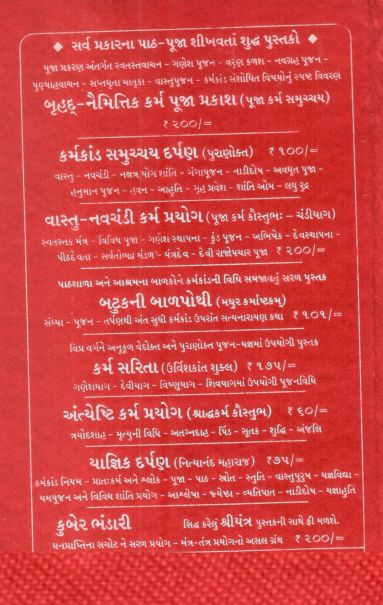 ◆ સર્વ પ્રકારના પાઠ-પૂજા શીખવતાં શુદ્ધ પુસ્તકો ◆
પૂજા પ્રકરણ અંતર્ગત સ્વસ્તવાચન - ગણેશ પૂજન - વરુણ કળશ - નવગ્રહ પૂજન -
પૂણ્યાહવાચન - સપ્તઘૃતા માતૃકા - વાસ્તુપૂજન - કર્મકાંડ સંશોધિત વિષયોનું સ્પષ્ટ વિવરણ
બૃહદ્-નૈમિત્તિક કર્મ પૂજા પ્રકાશ (પૂજા કર્મ સમુચ્ચય)
₹ ૨૦૦/=
કર્મકાંડ સમુચ્ચય દર્પણ (પુરાણોક્ત) ₹ ૧૦૦/=
વાસ્તુ - નવચંડી - નક્ષત્ર યોગ શાંતિ - ગંગાપૂજન - નાડીદોષ - અવધૂત પૂજા -
હનુમાન પૂજન - હવન - આહુતિ - ગૃહ પ્રવેશ - શાંતિ હોમ - લઘુ રુદ્ર
વાસ્તુ-નવચંડી કર્મ પ્રયોગ (પૂજા કર્મ કૌસ્તુભઃ - ચંડીયાગ)
સ્વતસ્તક મંત્ર - વિવિધ પૂજા - ગણેશ સ્થાપના - કુંડ પૂજન - અભિષેક - દેવસ્થાપના -
પીઠદેવતા - સર્વતોભદ્ર મંડળ - યંત્રદેવ - દેવી રાજોપચાર પૂજા ₹ ૨૦૦/=
પાઠશાળા અને આશ્રમના બાળકોને કર્મકાંડની વિધિ સમજાવતું સરળ પુસ્તક
બટુકની બાળપોથી (મયૂર કર્માષ્ટકમ્)
સંધ્યા - પૂજન - તર્પણથી અંત સુધી કર્મકાંડ ઉપરાંત સત્યનારાયણ કથા ₹ ૧૦૧/=
વિપ્ર વર્ગને અનુકૂળ વેદોક્ત અને પુરાણોક્ત પૂજન-યજ્ઞમાં ઉપયોગી પુસ્તક
કર્મ સરિતા (ઉર્વિશકાંત શુક્લ) ₹ ૧૭૫/=
ગણેશયાગ - દેવીયાગ - વિષ્ણુયાગ - શિવયાગમાં ઉપયોગી પૂજનવિધિ
અંત્યેષ્ટિ કર્મ પ્રયોગ (શ્રાદ્ધકર્મ કૌસ્તુભ) ₹ ૬૦/=
ત્રયોદશાહ - મૃત્યુની વિધિ - અતગ્નદાહ - પિંડ - સૂતક - શુદ્ધિ - અંજલિ
યાજ્ઞિક દર્પણ (નિત્યાનંદ મહારાજ) ₹૭૫/=
કર્મકાંડ નિયમ - પ્રાતઃકર્મ અને શ્લોક - પૂજા - પાઠ - સ્રોત - સ્તુતિ - વાસ્તુપુરુષ - યજ્ઞવિદ્યા -
યમપૂજન અને વિવિધ શાંતિ પ્રયોગ - આશ્લેષા - જ્યેષ્ઠા - વ્યતિપાત - નાડીદોષ - યજ્ઞાહુતિ
કુબેર ભંડારી સિદ્ધ કરેલું શ્રીયંત્ર પુસ્તકની સાથે ફ્રી મળશે.
ધનપ્રાપ્તિના સચોટ ને સરળ પ્રયોગ - મંત્ર-તંત્ર પ્રયોગનો અસલ ગ્રંથ ₹ ૨૦૦/=